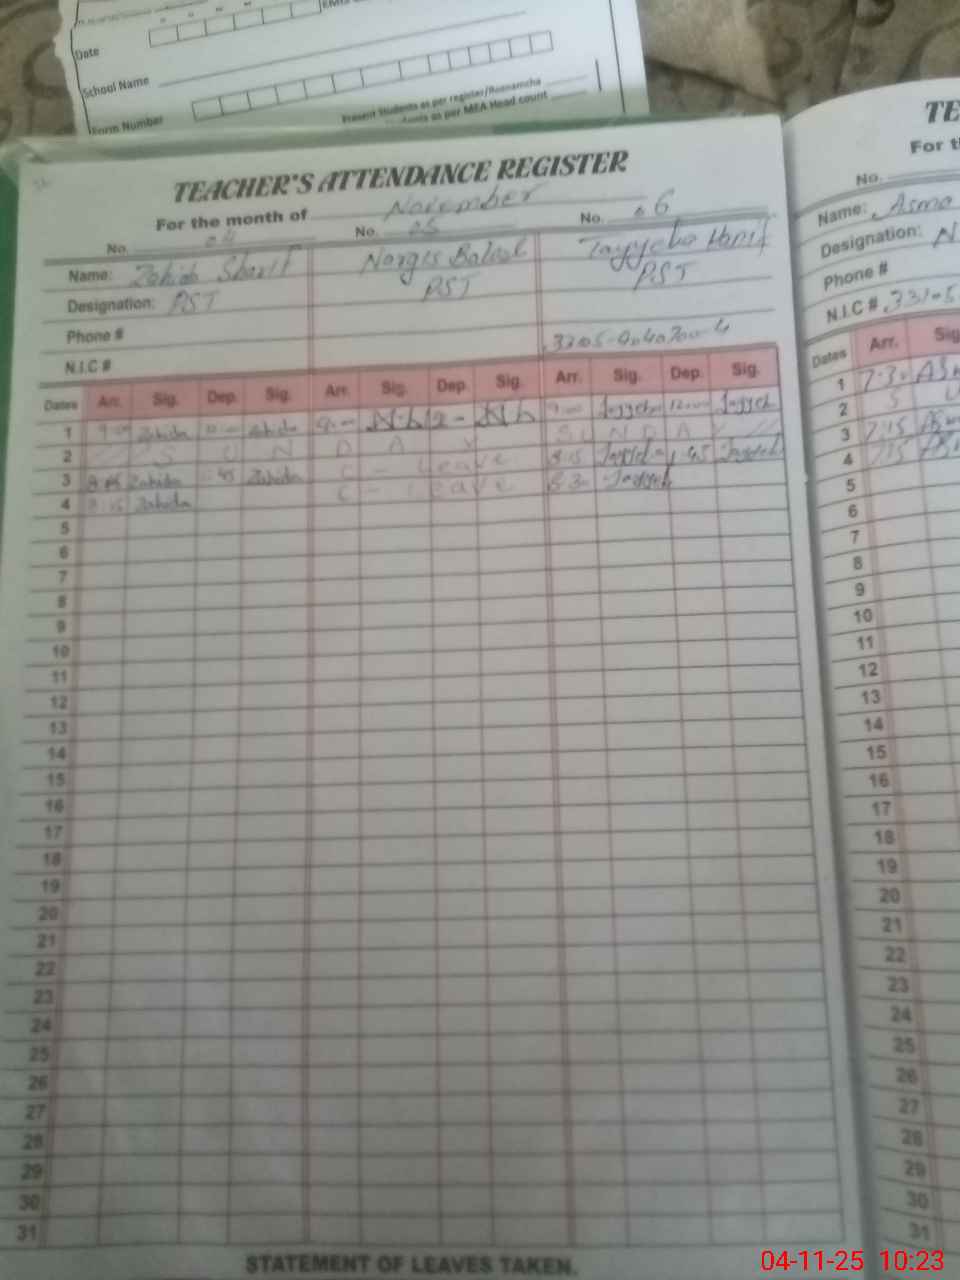 Date
School Name
Form Number
Present Students as per register/Roznamcha
as per MEA Head count
TEACHER'S ATTENDANCE REGISTER
For the month of November
No. 04 No. 05 No. 06
Name: Zahida Sharif Nargis Tayyeba Hanif
Designation: PST PST PST
Phone #
N.I.C #
Dates Arr. Sig. Dep. Sig. Arr. Sig. Dep. Sig. Arr. Sig. Dep. Sig.
1 9:00 Zahida Zahida 9:00 N.h N.h 9:00 Tayyeba 12:00 Tayyeba
2 S U N D A Y S U N D A Y
3 Zahida 45 Zahida C - Leave 8:15 Tayyeba 1:45 Tayyeba
4 8:15 Zahida C - Leave 8:30 Tayyeba
5
6
7
8
9
10
11
12
13
14
15
16
17
18
19
20
21
22
23
24
25
26
27
28
29
30
31
STATEMENT OF LEAVES TAKEN.
TE
For t
No.
Name: Asma
Designation: N
Phone #
N.I.C #
Dates Arr. Sig
1 7:30 Asm
2 S U
3 7:15 Asm
4 7:15
5
6
7
8
9
10
11
12
13
14
15
16
17
18
19
20
21
22
23
24
25
26
27
28
29
30
31
04-11-25 10:23